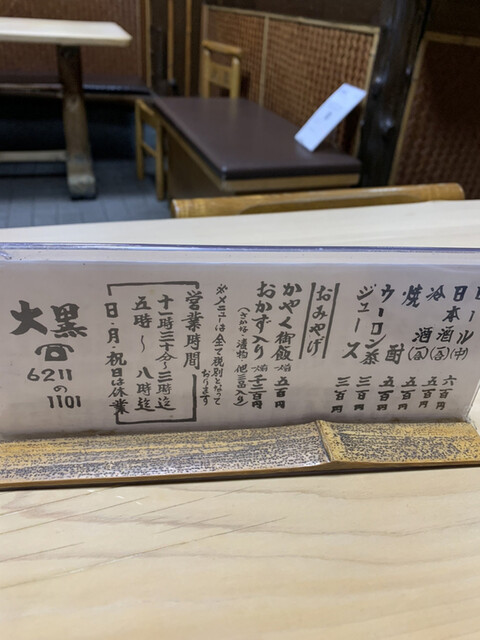 ール(中) 六百円
日本酒 五百円
冷酒 五百円
焼酎 五百円
ウーロン茶 三百円
ジュース 三百円
おみやげ
かやく御飯 一人前 五百円
おかず入り 一人前 千二百円
※メニューは全て税別となって
おります
営業時間
十一時三十分〜三時迄
五時〜八時迄
日・月・祝日は休業
大黒
☎
6211
の
1101